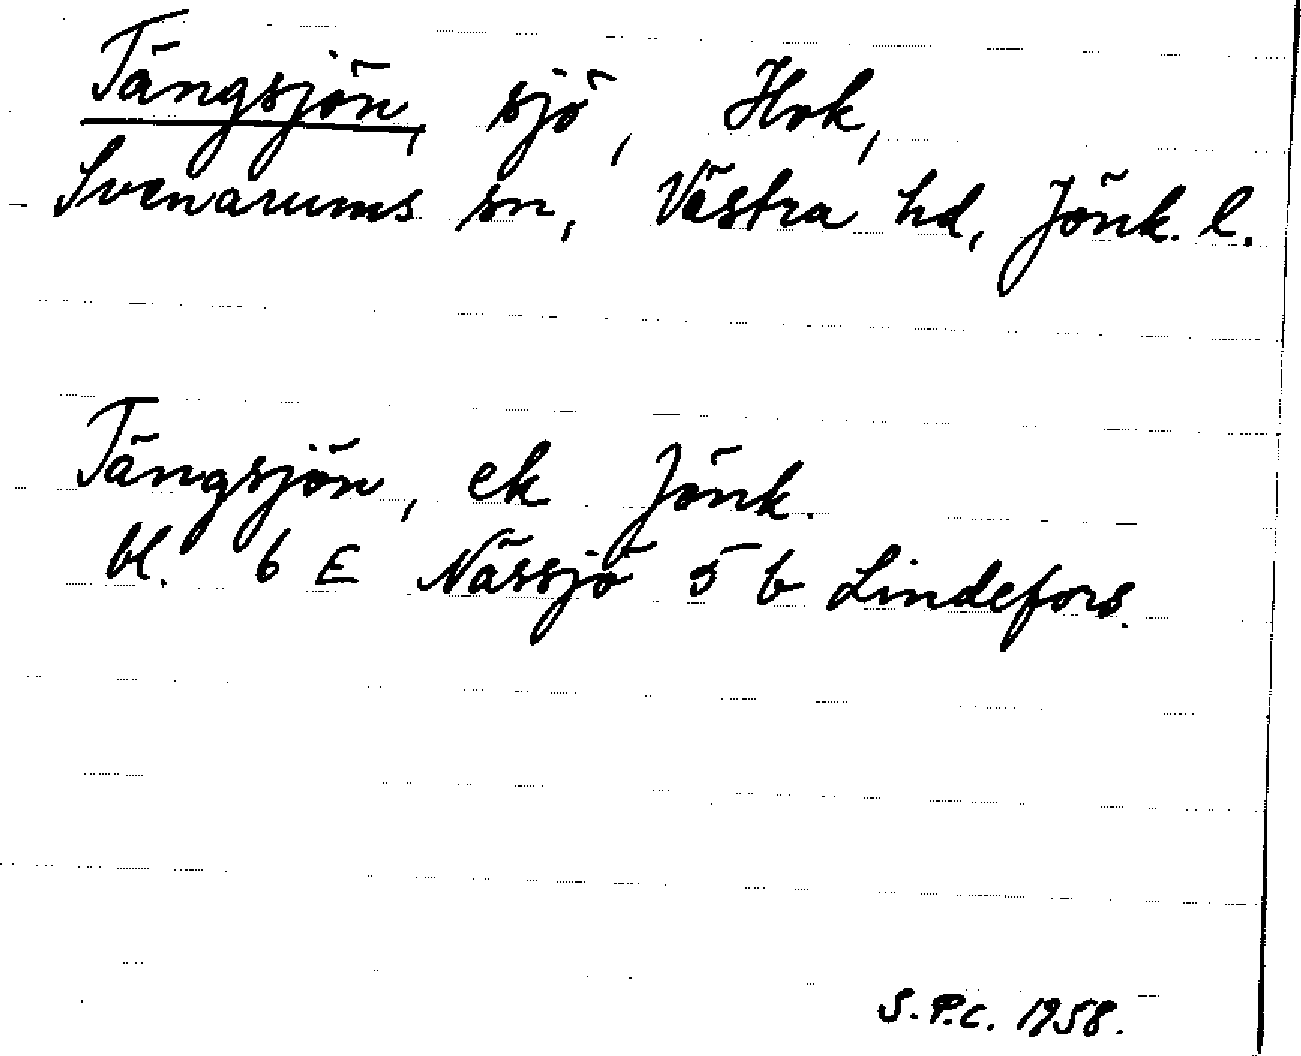 Tängsjön, sjö, Hok,
Svenarums sn, Västra hd, Jönk. l.
Tängsjön, ek Jönk.
bl. 6 E Nässjö 5 b Lindefors.
S.P.C. 1958.